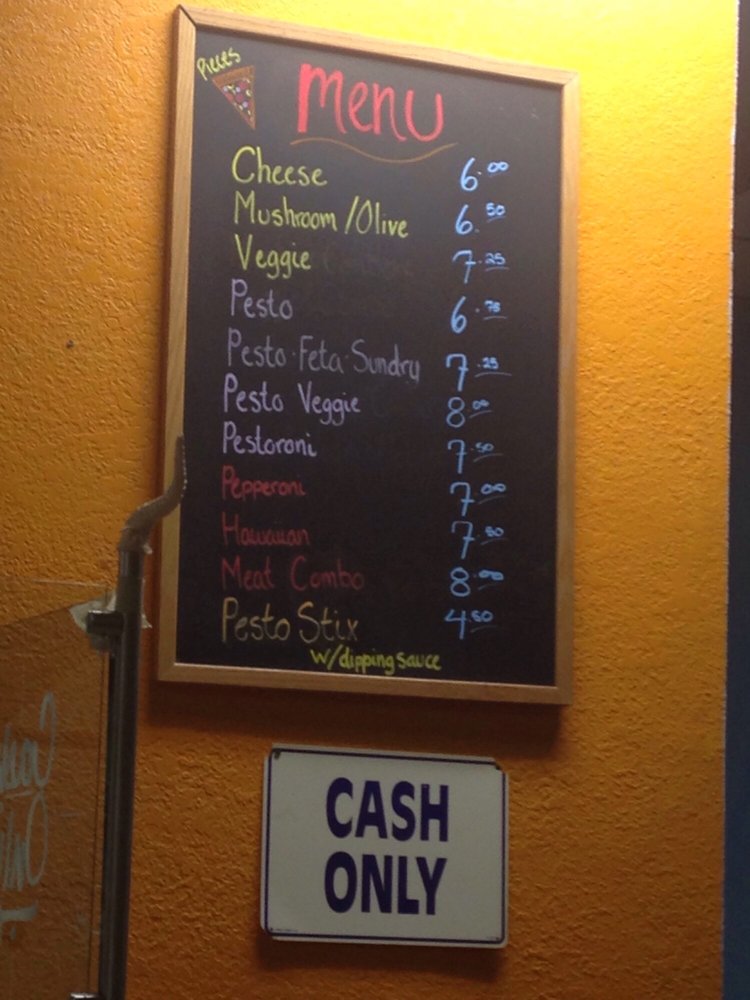 Pieces
Menu
Cheese 6.00
Mushroom/Olive 6.50
Veggie 7.25
Pesto 6.75
Pesto·Feta·Sundry 7.25
Pesto Veggie 8.00
Pestoroni 7.50
Pepperoni 7.00
Hawaiian 7.50
Meat Combo 8.00
Pesto Stix 4.50
w/dipping sauce
CASH
ONLY